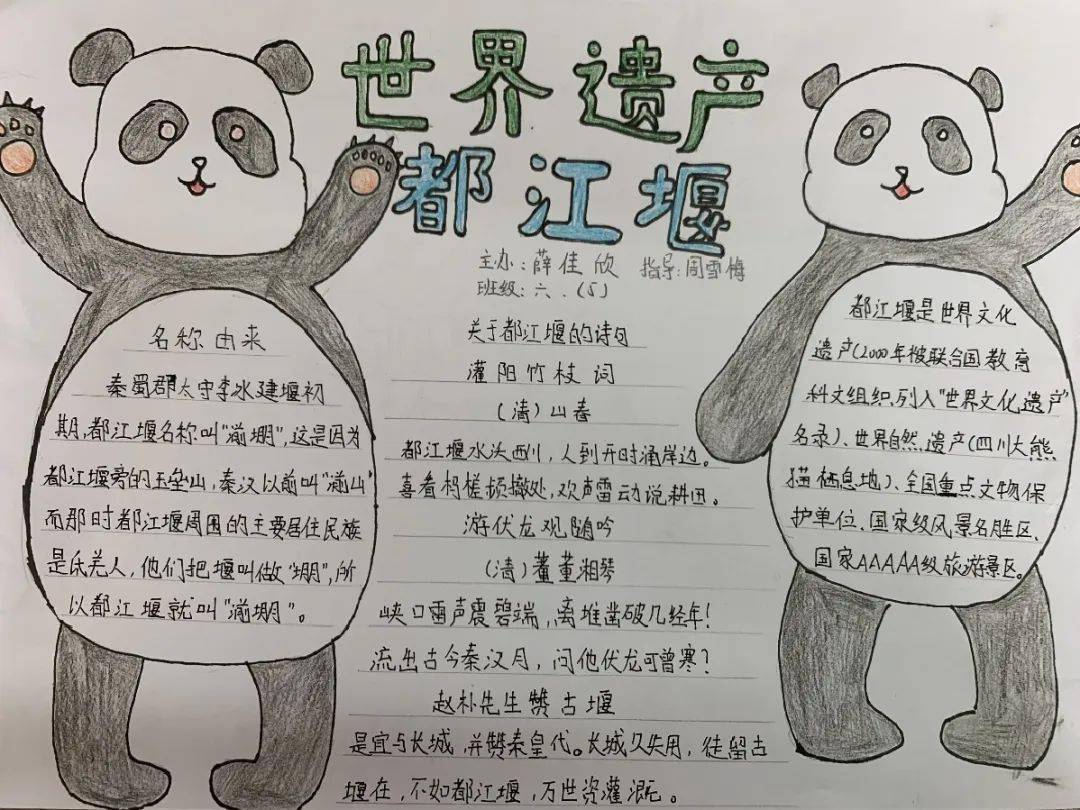 世界遗产
都江堰
主办：薛佳欣 指导：周雪梅
班级：六.（5）
名称由来
秦蜀郡太守李冰建堰初
期，都江堰名称叫“湔堋”，这是因为
都江堰旁的玉垒山，秦汉以前叫“湔山”
而那时都江堰周围的主要居住民族
是氐羌人，他们把堰叫做“堋”，所
以都江堰就叫“湔堋”。
关于都江堰的诗句
灌阳竹枝词
（清）山春
都江堰水沃西川，人到开时涌岸边。
喜看杩槎频撤处，欢声雷动说耕田。
游伏龙观随吟
（清）董湘琴
峡口雷声震碧端，离堆凿破几经年！
流出古今秦汉月，问他伏龙可曾寒？
赵朴先生赞古堰
是宜与长城，并赞秦皇代。长城久失用，徒留古
堰在，不如都江堰，万世资灌溉。
都江堰是世界文化
遗产（2000年被联合国教育
科文组织列入“世界文化遗产”
名录）、世界自然遗产（四川大熊
猫栖息地）、全国重点文物保
护单位、国家级风景名胜区、
国家AAAAA级旅游景区。